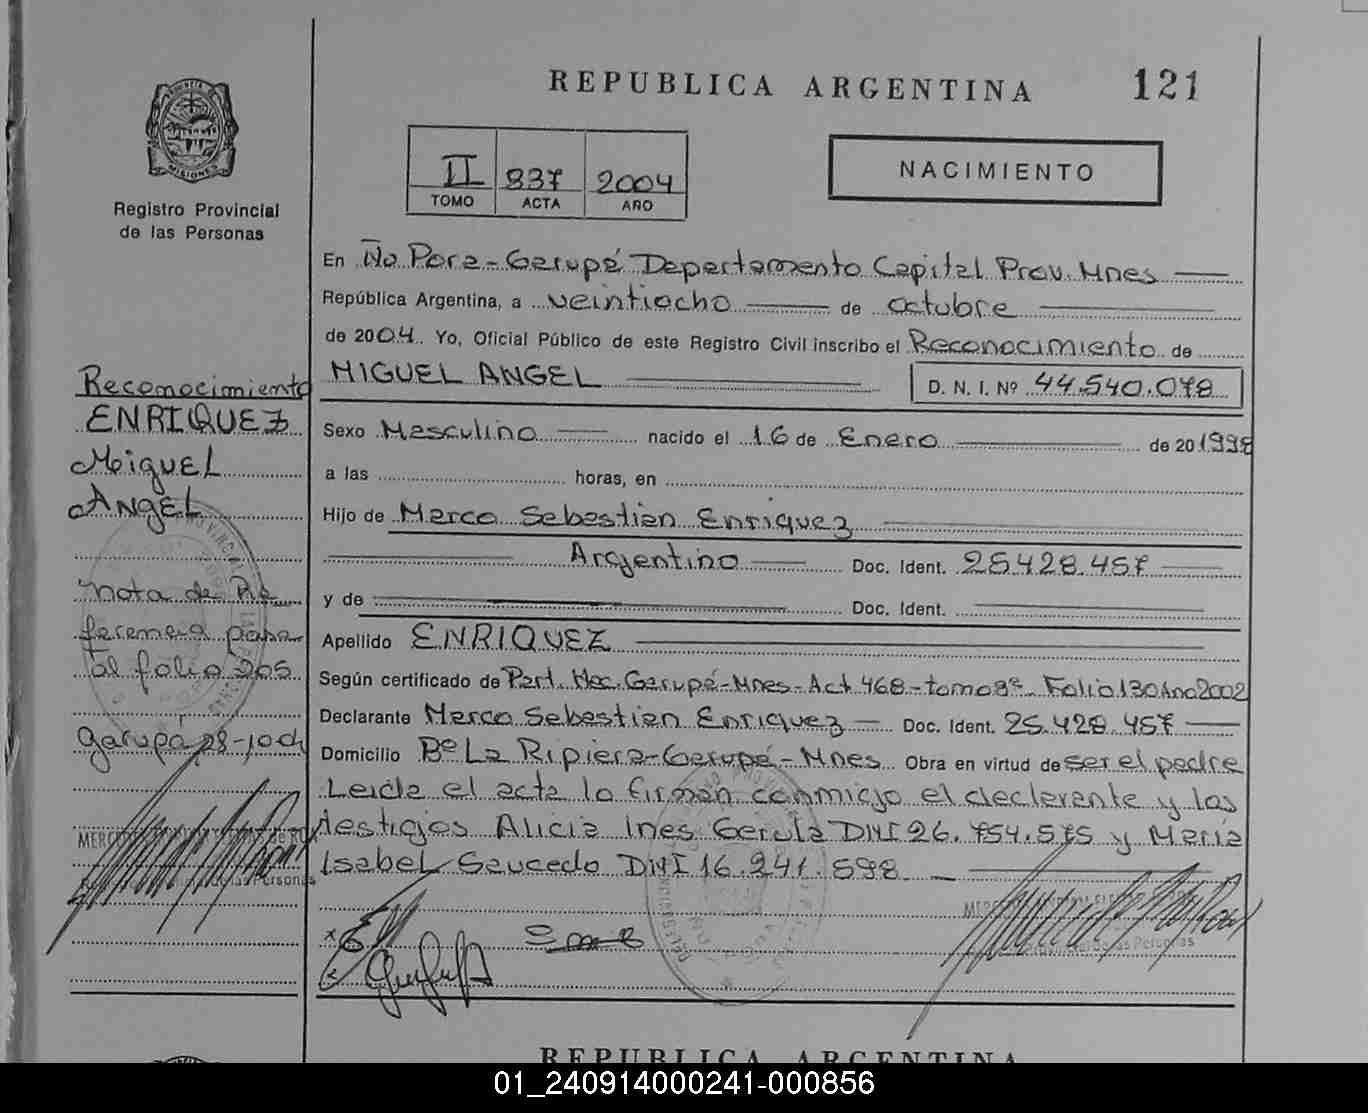 REPUBLICA ARGENTINA
121
MISIONES
Registro Provincial
de las Personas
II 837 2004
TOMO ACTA AÑO
NACIMIENTO
En Ño Pora - Garupá Departamento Capital Prov. Mnes
República Argentina, a veintiocho de octubre
de 2004. Yo, Oficial Público de este Registro Civil inscribo el Reconocimiento de
MIGUEL ANGEL
D. N. I. Nº 44.540.078
Sexo Masculino nacido el 16 de Enero de 20 1998
a las horas, en
Hijo de Marco Sebastian Enriquez
Argentino Doc. Ident. 25.428.457
y de Doc. Ident.
Apellido ENRIQUEZ
Según certificado de Part. Nac. Garupá - Mnes - Act 468 - tomo 3º Folio 130 Ano 2002
Declarante Marco Sebastian Enriquez Doc. Ident. 25.428.457
Domicilio Bº La Ripiera - Garupá - Mnes Obra en virtud de ser el padre
Leida el acta la firman conmigo el declarante y los
testigos Alicia Ines Gerula DNI 26.754.575 y Maria
Isabel Saucedo DNI 16.241.598
Reconocimiento
ENRIQUEZ
Miguel
Angel
nota de Re
ferencia pasa
al folio 205
Garupá, 28-10-04
de las Personas
REPUBLICA ARGENTINA
01_240914000241-000856